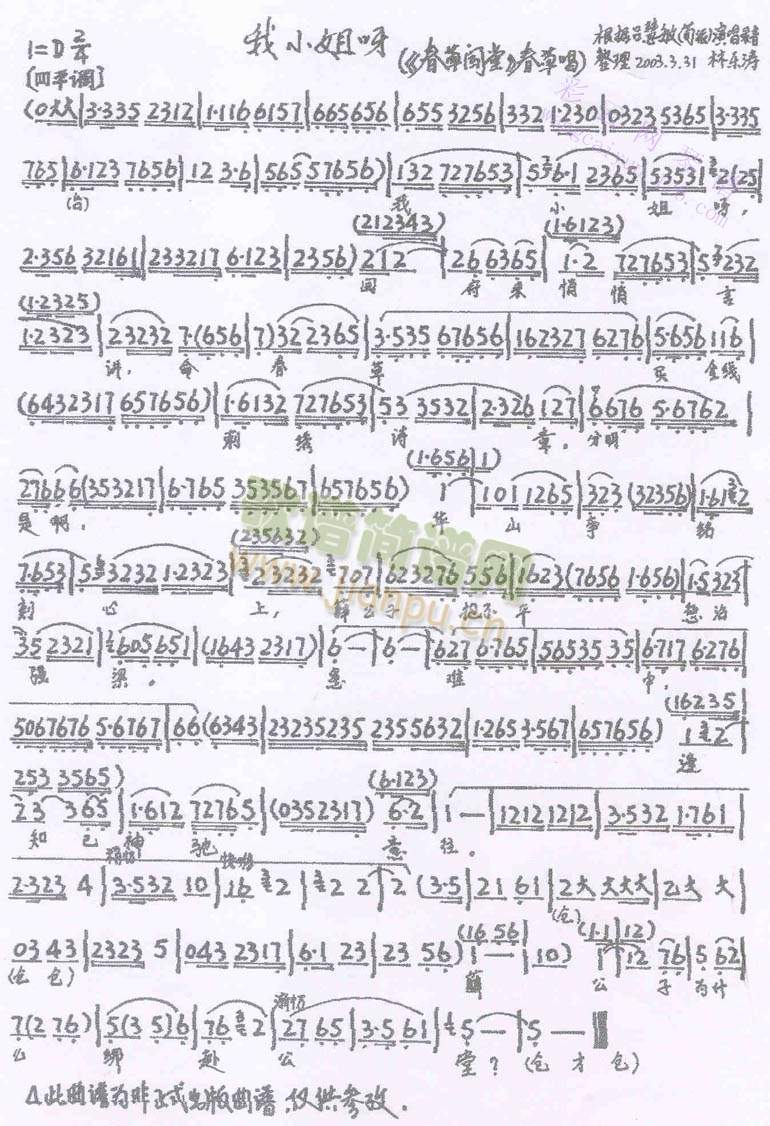 我小姐呀
1=D 2/4
(《春草闯堂》春草唱)
根据吕慧敏(荀派)演唱录音
整理 2003.3.31 林东涛
[四平调]
(0大大|3·335 2312|1·116 6157|665656|655 3256|332 1·230|0323 5365|3·335
765|6·123 7656|12 3·6|565 57656)|132 727653|5 6·1 2365|53531 2(25|
(台) 我 小 姐 呀,
(212343) (1·6123)
2·356 32161|233217 6·123|2356) 212|26 6365|1·2 727653|5 3232
回 府 来 悄 悄 言
(1·2325)
1·2323|23232 7·(656|7)32 2365|3·535 67656|162327 6276|5·656 116|
讲, 命 春 草 买 金线
(6432317 657656)|1·6132 727653|53 3532|2·326 127|6676 5·6762|
刺 绣 诗 章, 分明
(1·656|1)
27666(353217|6·765 353567|657656) 1|101 1265|323 (32356)|1·61 2
是啊, 华 山 争 绍
(235632)
7653|5 3232 1·2323|23232 707|623276 556|1623(7656 1·656)|1·5323|
射 心 上, 薛公子 抱不平 惩治
35 2321|605651|(1643 2317)|6 —|6 —|627 6·765|56535 35|6·717 6·276|
强 梁。 急 难 中,
(16235|
5067676 5·6767|66(6343|23235235 2355632|1·265 3·567|657656) 1 2|
逢
253 3565) (6·123)
23 365|1·612 72765|(0352317) 6·2|1 —|1212 1212|3·532 1·761|
知 己 神 驰 意 往。
2·323 4|3·532 10|16 2|2 2|2 (3·5|21 61|2大 大大大|乙大 大|
(仓)
(16 56| (1·1|12)
03 43|2323 5|043 2317|6·1 23|23 56) 1 —|10) 1|12 76|5 62|
(仓 仓) 薛 公 子 为什
渐慢
7(2 76)|5(3 5)6|76 2|27 65|3·5 61|5 —|5 —|
么 绑 赴 公 堂? (仓 才 仓)
△此曲谱为非正式出版曲谱,仅供参改.
歌谱简谱网
www.jianpu.cn